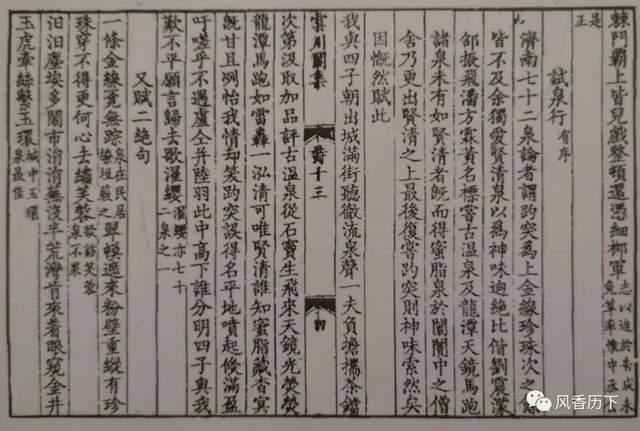 棘門霸上皆兒戲整頓還憑細柳軍志以迫於告成未
是正
試泉行有序
濟南七十二泉論者謂趵突為上金線珍珠次之餘
皆不及余獨愛賢清泉以為神味迥絶比偕劉霞藻
邰振飛潘方霖黃名標嘗古溫泉及龍潭天鏡馬跑
諸泉未有如賢清者既而得蜜脂泉於闤闠中之僧
舍乃更出賢清之上最後復嘗趵突則神味索然矣
因慨然賦此
我與四子朝出城滿街聽徹流泉聲一夫負擔攜茶鐺
雲川閣集
詩十三
次第汲取加品評古溫泉從石竇生飛來天鏡光熒熒
龍潭馬跑如雷轟一泓清可唯賢清誰知蜜脂藏杳冥
既甘且冽怡我情却笑趵突誤得名平地噴起候滿盈
吁嗟乎不遇盧仝并陸羽此中高下誰分明四子與我
歎不平願言歸去歌濯纓濯纓亦七十二泉之一
又賦二絶句
一條金線竟無踪泉在民居墻垣蔽之翠幙遮來粉壁重縱有珍
珠穿不得更何心去繡芙蓉欲訪芙蓉泉不果
汩汩塵埃多閙市涓涓蕪没半荒灣肯來着眼窺金井
玉虎牽絲繫玉環城中玉環泉最佳
风香历下